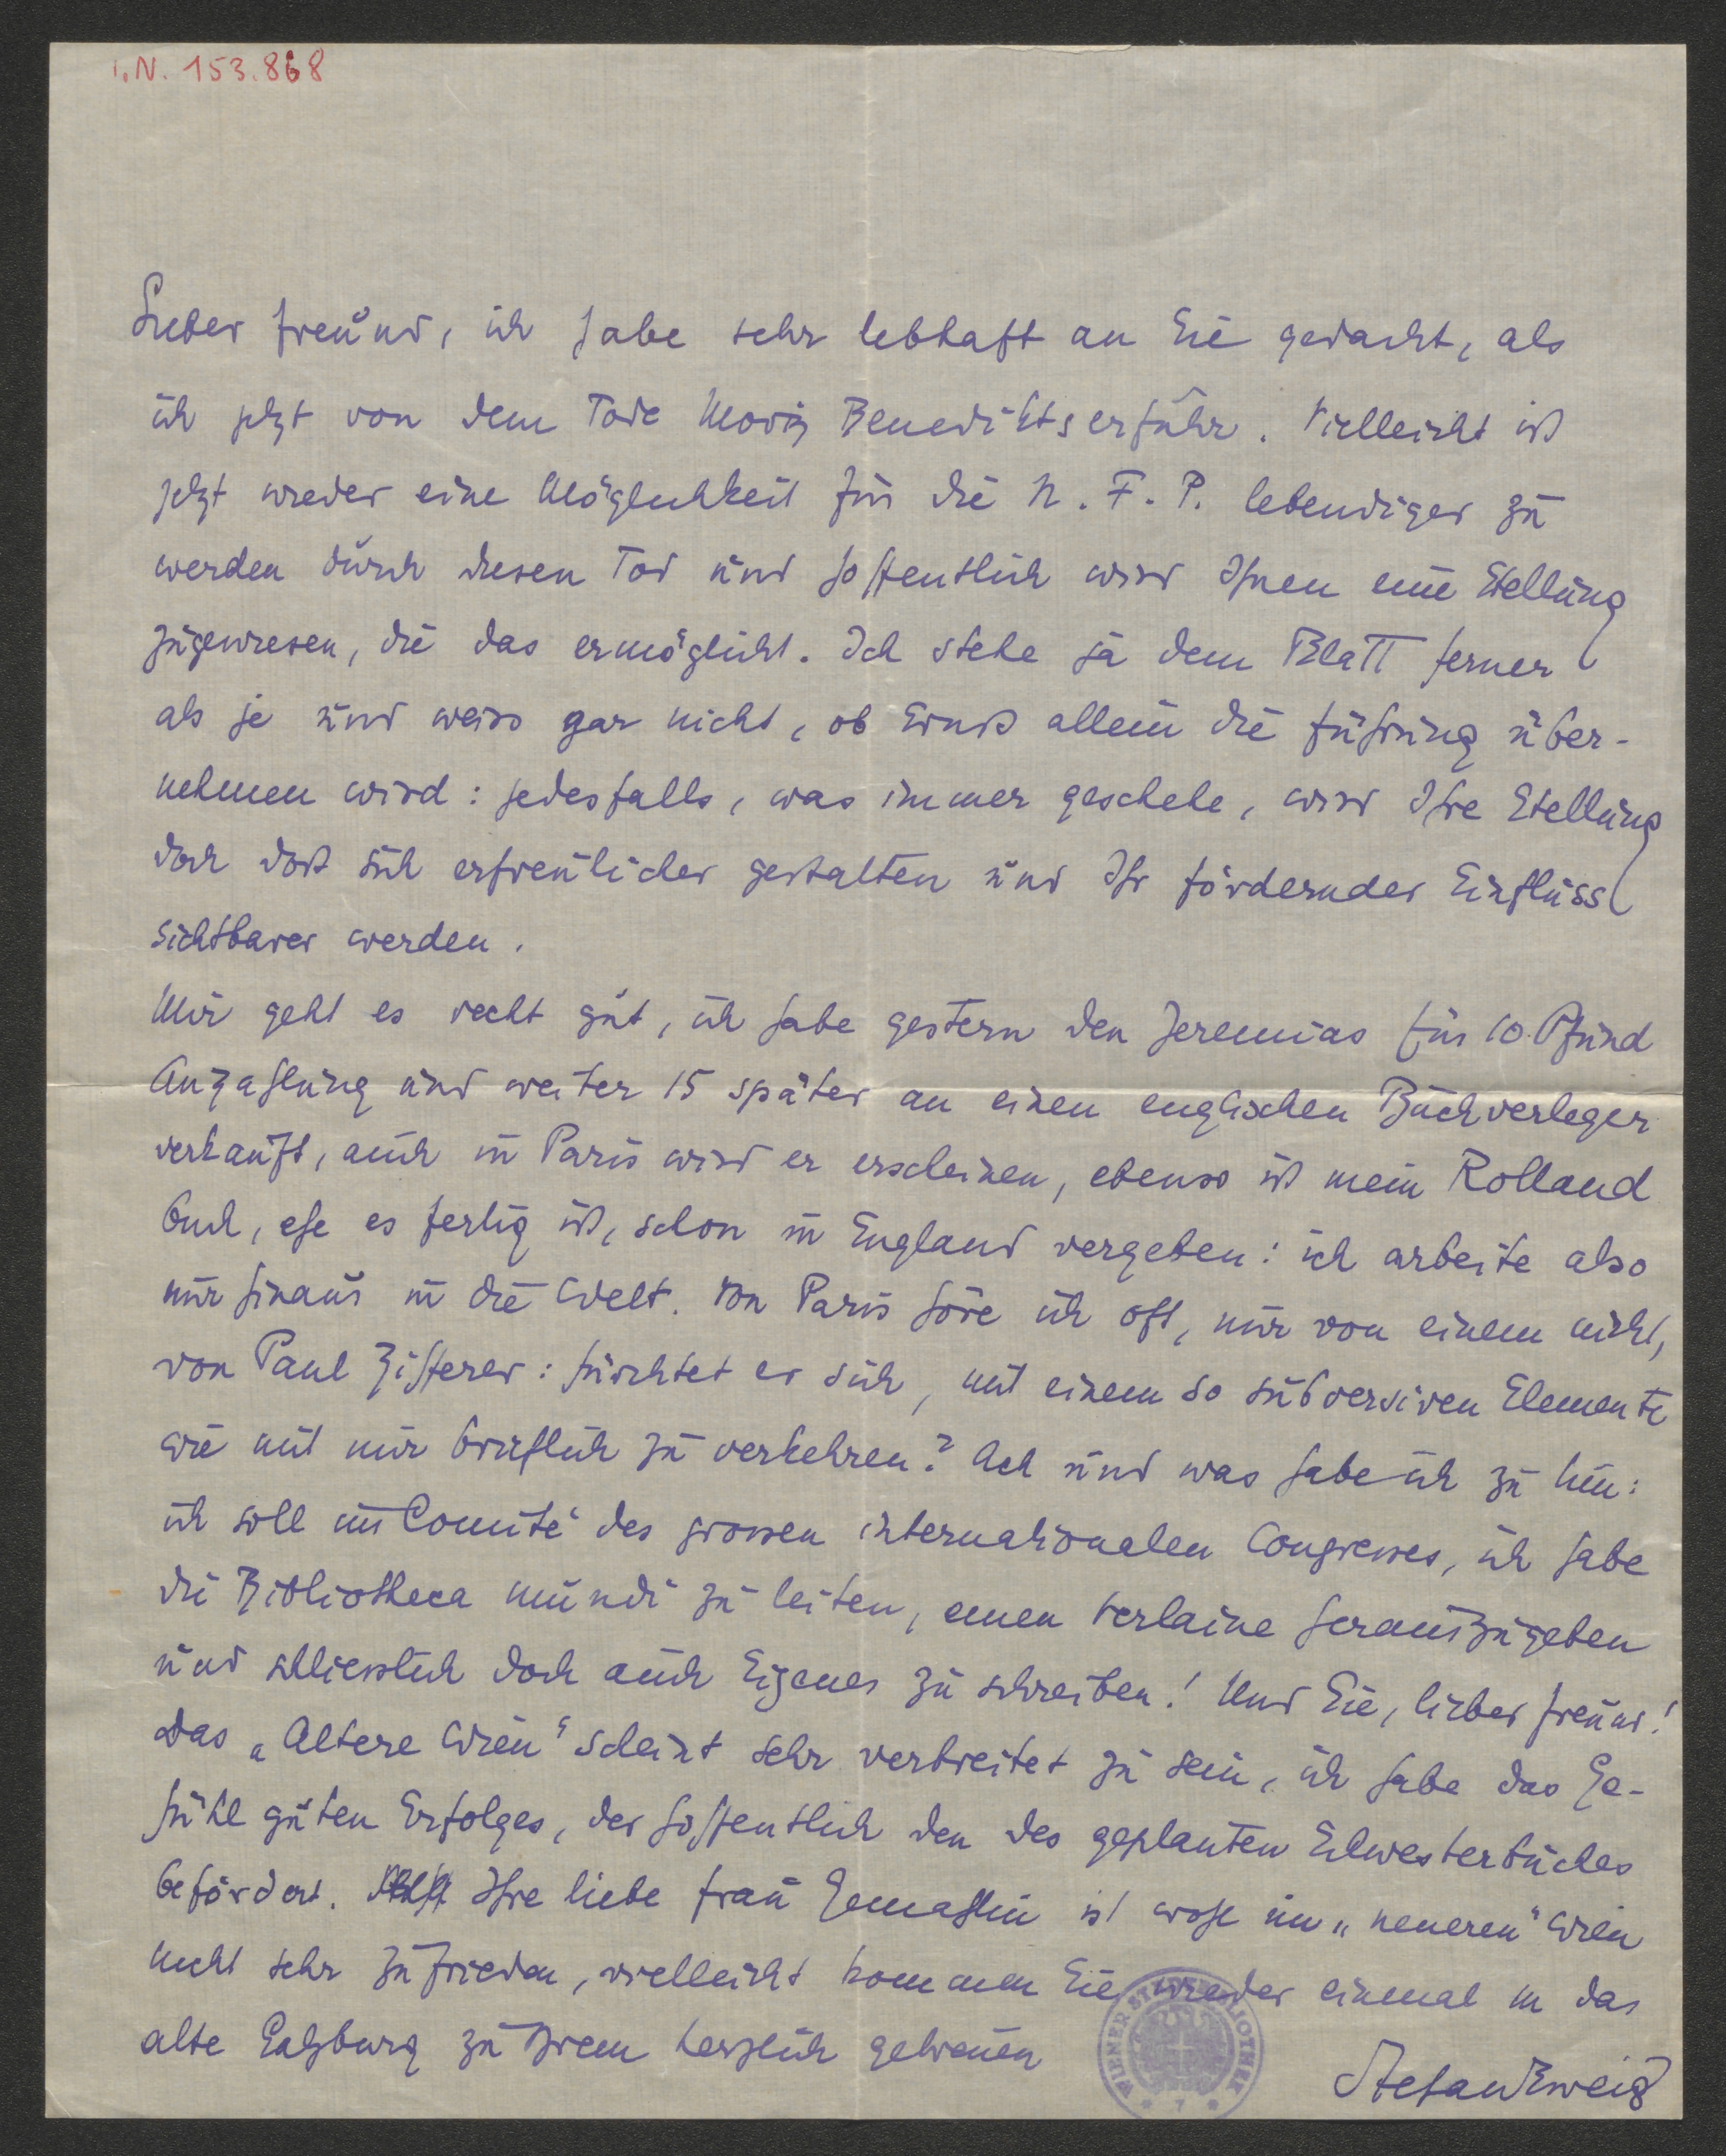 I.N. 153.868
Lieber Freund, ich habe sehr lebhaft an Sie gedacht, als
ich jetzt von dem Tode Moriz Benedikts erfuhr. Vielleicht ist
jetzt wieder eine Möglichkeit für die N. F. P. lebendiger zu
werden durch diesen Tod und hoffentlich wird Ihnen eine Stellung
zugewiesen, die das ermöglicht. Ich stehe ja dem Blatt ferner
als je und weiss gar nicht, ob Ernst allein die Führung über-
nehmen wird: jedesfalls, was immer geschehe, wird Ihre Stellung
doch dort sich erfreulicher gestalten und Ihr fördernder Einfluss
sichtbarer werden.
Mir geht es recht gut, ich habe gestern den Jeremias für 10 Pfund
Anzahlung und weiter 15 später an einen englischen Buchverleger
verkauft, auch in Paris wird er erscheinen, ebenso ist mein Rolland
Buch, ehe es fertig ist, schon in England vergeben: ich arbeite also
nur hinaus in die Welt. Von Paris höre ich oft, nur von einem nicht,
von Paul Zifferer: fürchtet er sich, mit einem so subversiven Elemente
wie mit mir brieflich zu verkehren? Ach und was habe ich zu tun:
ich soll ins Comité des grossen internationalen Congresses, ich habe
die Bibliotheca mundi zu leiten, einen Verlaine herauszugeben
und schliesslich doch auch Eigenes zu schreiben! Und Sie, lieber Freund!
Das „Altere Wien“ scheint sehr verbreitet zu sein, ich habe das Ge-
fühl guten Erfolges, der hoffentlich den des geplanten Sylvesterbuches
befördert. Ihre liebe Frau Gemahlin ist wohl im „neueren“ Wien
nicht sehr zufrieden, vielleicht kommen Sie wieder einmal in das
alte Salzburg zu Ihrem herzlich getreuen
Stefan Zweig
WIENER STADTBIBLIOTHEK
* 7 *